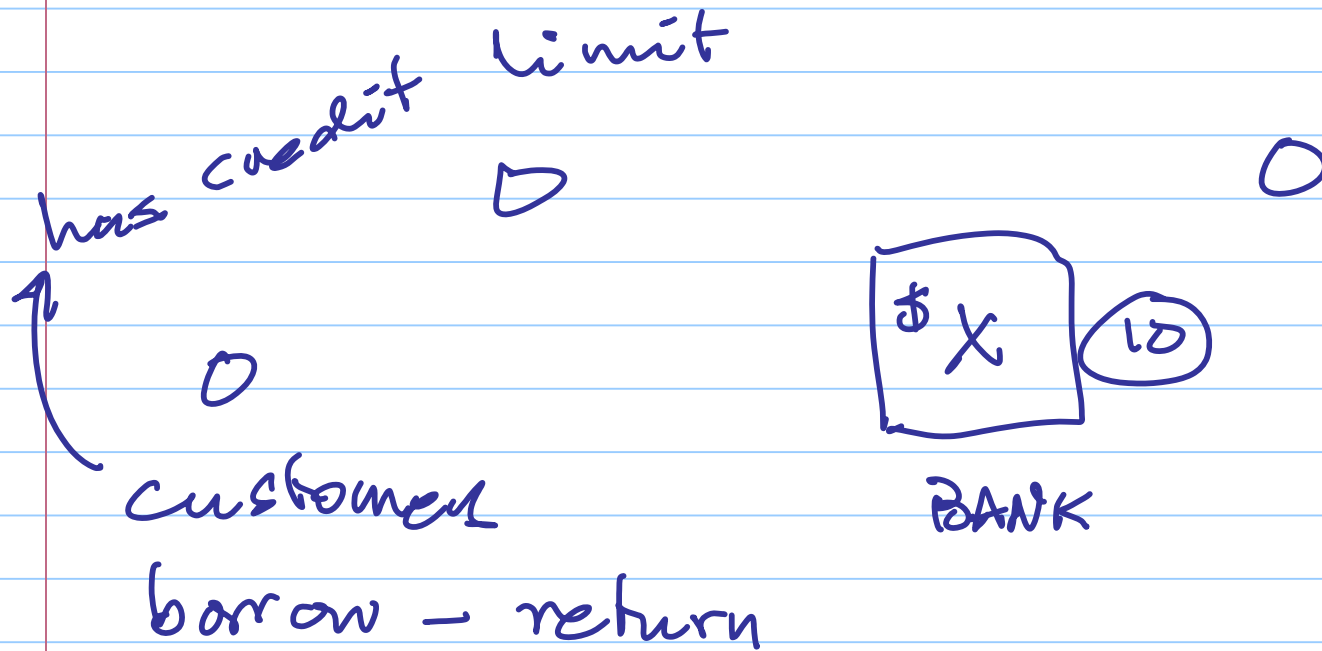 has credit limit
$ X 10
customer
BANK
borrow - return